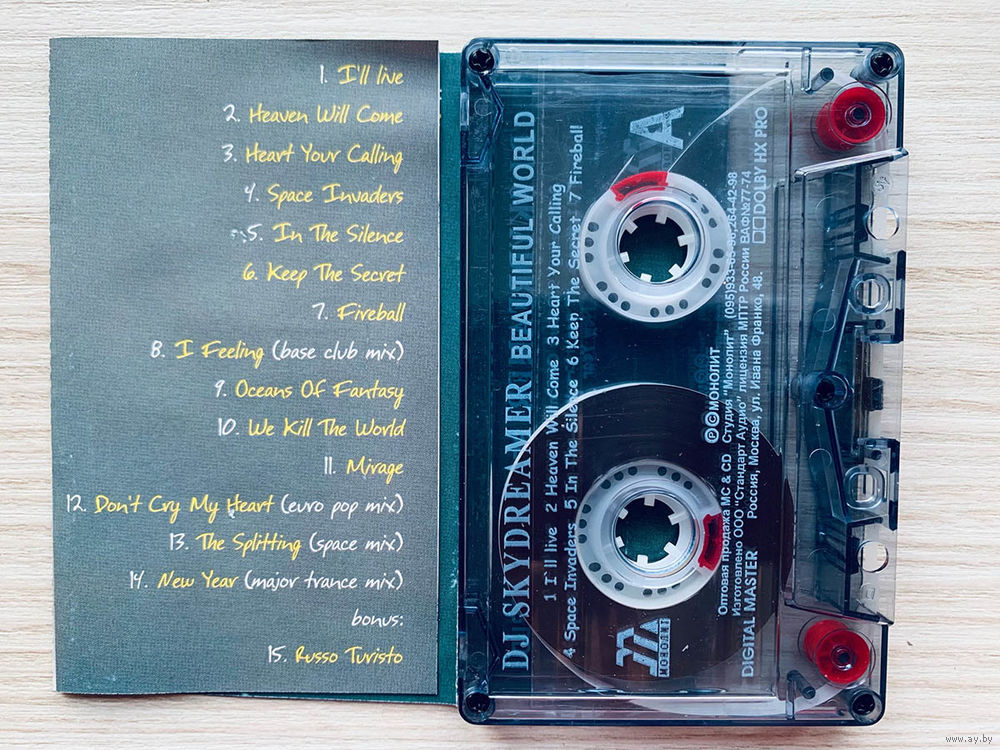 1. I'll live
2. Heaven Will Come
3. Heart Your Calling
4. Space Invaders
5. In The Silence
6. Keep The Secret
7. Fireball
8. I Feeling (base club mix)
9. Oceans Of Fantasy
10. We Kill The World
11. Mirage
12. Don't Cry My Heart (euro pop mix)
13. The Splitting (space mix)
14. New Year (major trance mix)
bonus:
15. Russo Turisto
DJ SKYDREAMER BEAUTIFUL WORLD
A
1 I`ll live 2 Heaven Will Come 3 Heart Your Calling
4 Space Invaders 5 In The Silence 6 Keep The Secret 7 Fireball
МОНОЛИТ
℗©МОНОЛИТ
Оптовая продажа МС & CD Студия "Монолит" (095)933-
264-42-98
Изготовлено ООО "Стандарт Аудио" лицензия МПТР России ВАФ№77-74
Россия, Москва, ул. Ивана Франко, 48.
DIGITAL MASTER
DOLBY HX PRO
www.ay.by